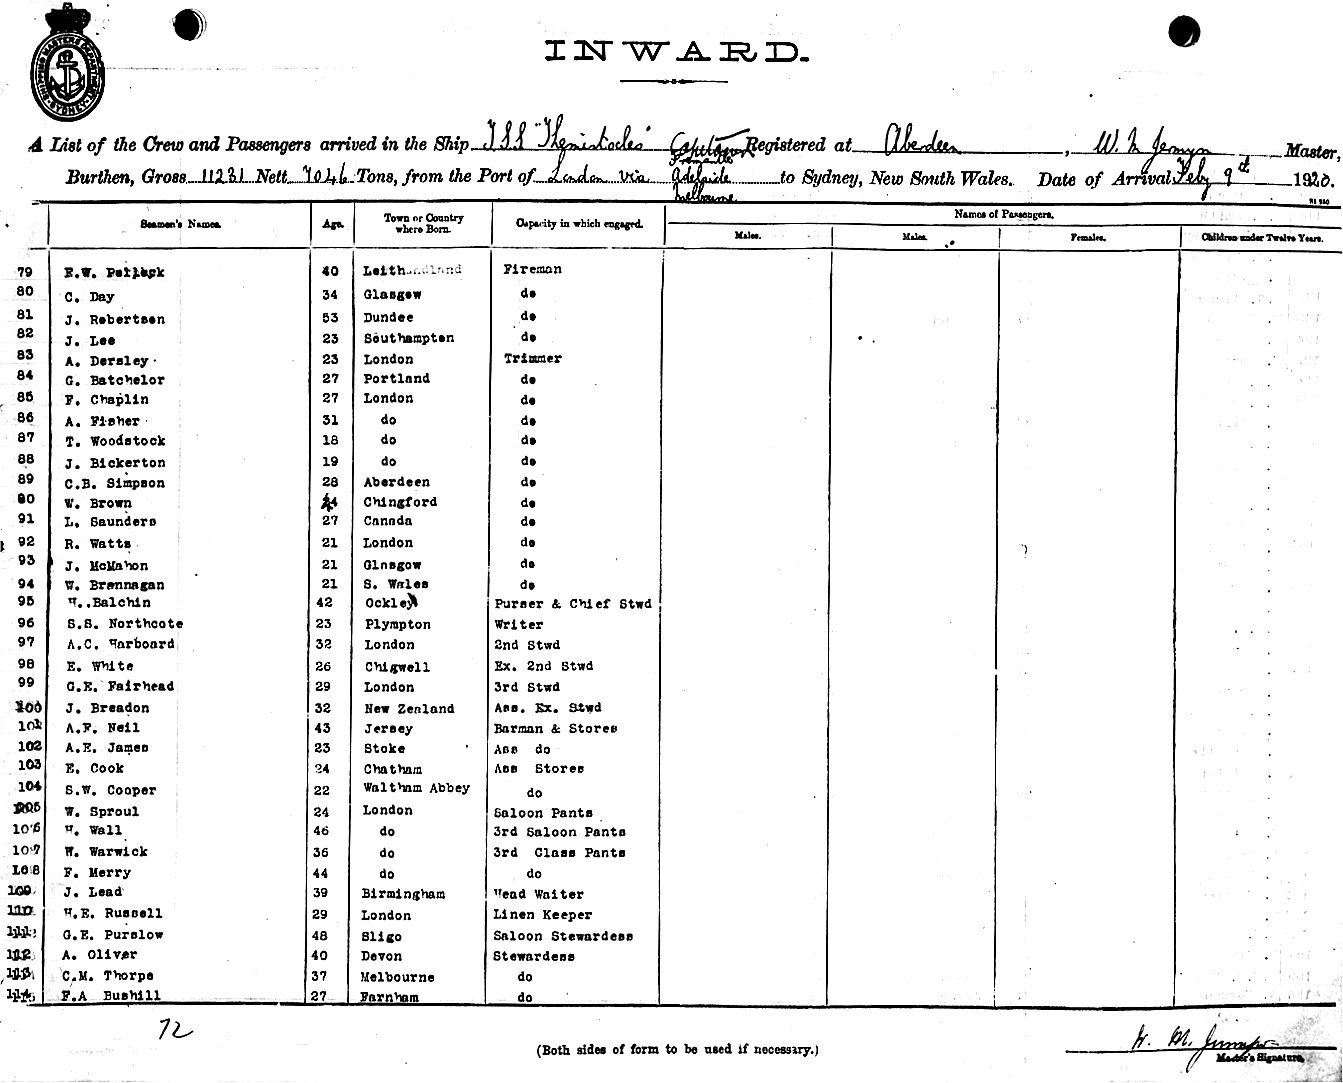 SHIPPING MASTERS DEPARTMENT SYDNEY
INWARD.
A List of the Crew and Passengers arrived in the Ship TSS "Themistocles" Capetown Registered at Aberdeen, W. M Jermyn Master,
Fremantle
Burthen, Gross 11231 Nett 7046 Tons, from the Port of London via Adelaide to Sydney, New South Wales. Date of Arrival Feby 9th 1920.
Melbourne
Seamen's Names. Age. Town or Country where Born. Capacity in which engaged. Names of Passengers.
Males. Males. Females. Children under Twelve Years.
79 40 Leith Fireman
80 C. Day 34 Glasgow do
81 J. Robertson 53 Dundee do
82 J. Lee 23 Southampton do
83 A. Dersley 23 London Trimmer
84 G. Batchelor 27 Portland do
85 F. Chaplin 27 London do
86 A. Fisher 31 do do
87 T. Woodstock 18 do do
88 J. Bickerton 19 do do
89 C.B. Simpson 28 Aberdeen do
90 W. Brown Chingford do
91 L. Saunders 27 Canada do
92 R. Watts 21 London do
93 J. McMahon 21 Glasgow do
94 W. Brannagan 21 S. Wales do
95 H..Balchin 42 Ockley Purser & Chief Stwd
96 S.S. Northcote 23 Plympton Writer
97 A.C. Harboard 32 London 2nd Stwd
98 E. White 26 Chigwell Ex. 2nd Stwd
99 G.E. Fairhead 29 London 3rd Stwd
100 J. Breadon 32 New Zealand Ass. Ex. Stwd
101 A.F. Neil 43 Jersey Barman & Stores
102 A.E. James 23 Stoke Ass do
103 E. Cook 24 Chatham Ass Stores
104 S.W. Cooper 22 Waltham Abbey do
105 W. Sproul 24 London Saloon Pants
106 H. Wall 46 do 3rd Saloon Pants
107 W. Warwick 36 do 3rd Class Pants
108 F. Merry 44 do do
109 J. Lead 39 Birmingham Head Waiter
110 H.E. Russell 29 London Linen Keeper
111 G.E. Purslow 48 Sligo Saloon Stewardess
112 A. Oliver 40 Devon Stewardess
113 C.M. Thorpe 37 Melbourne do
114 F.A Bushill 27 Farnham do
72
(Both sides of form to be used if necessary.)
W. M. Jermyn
Master's Signature.